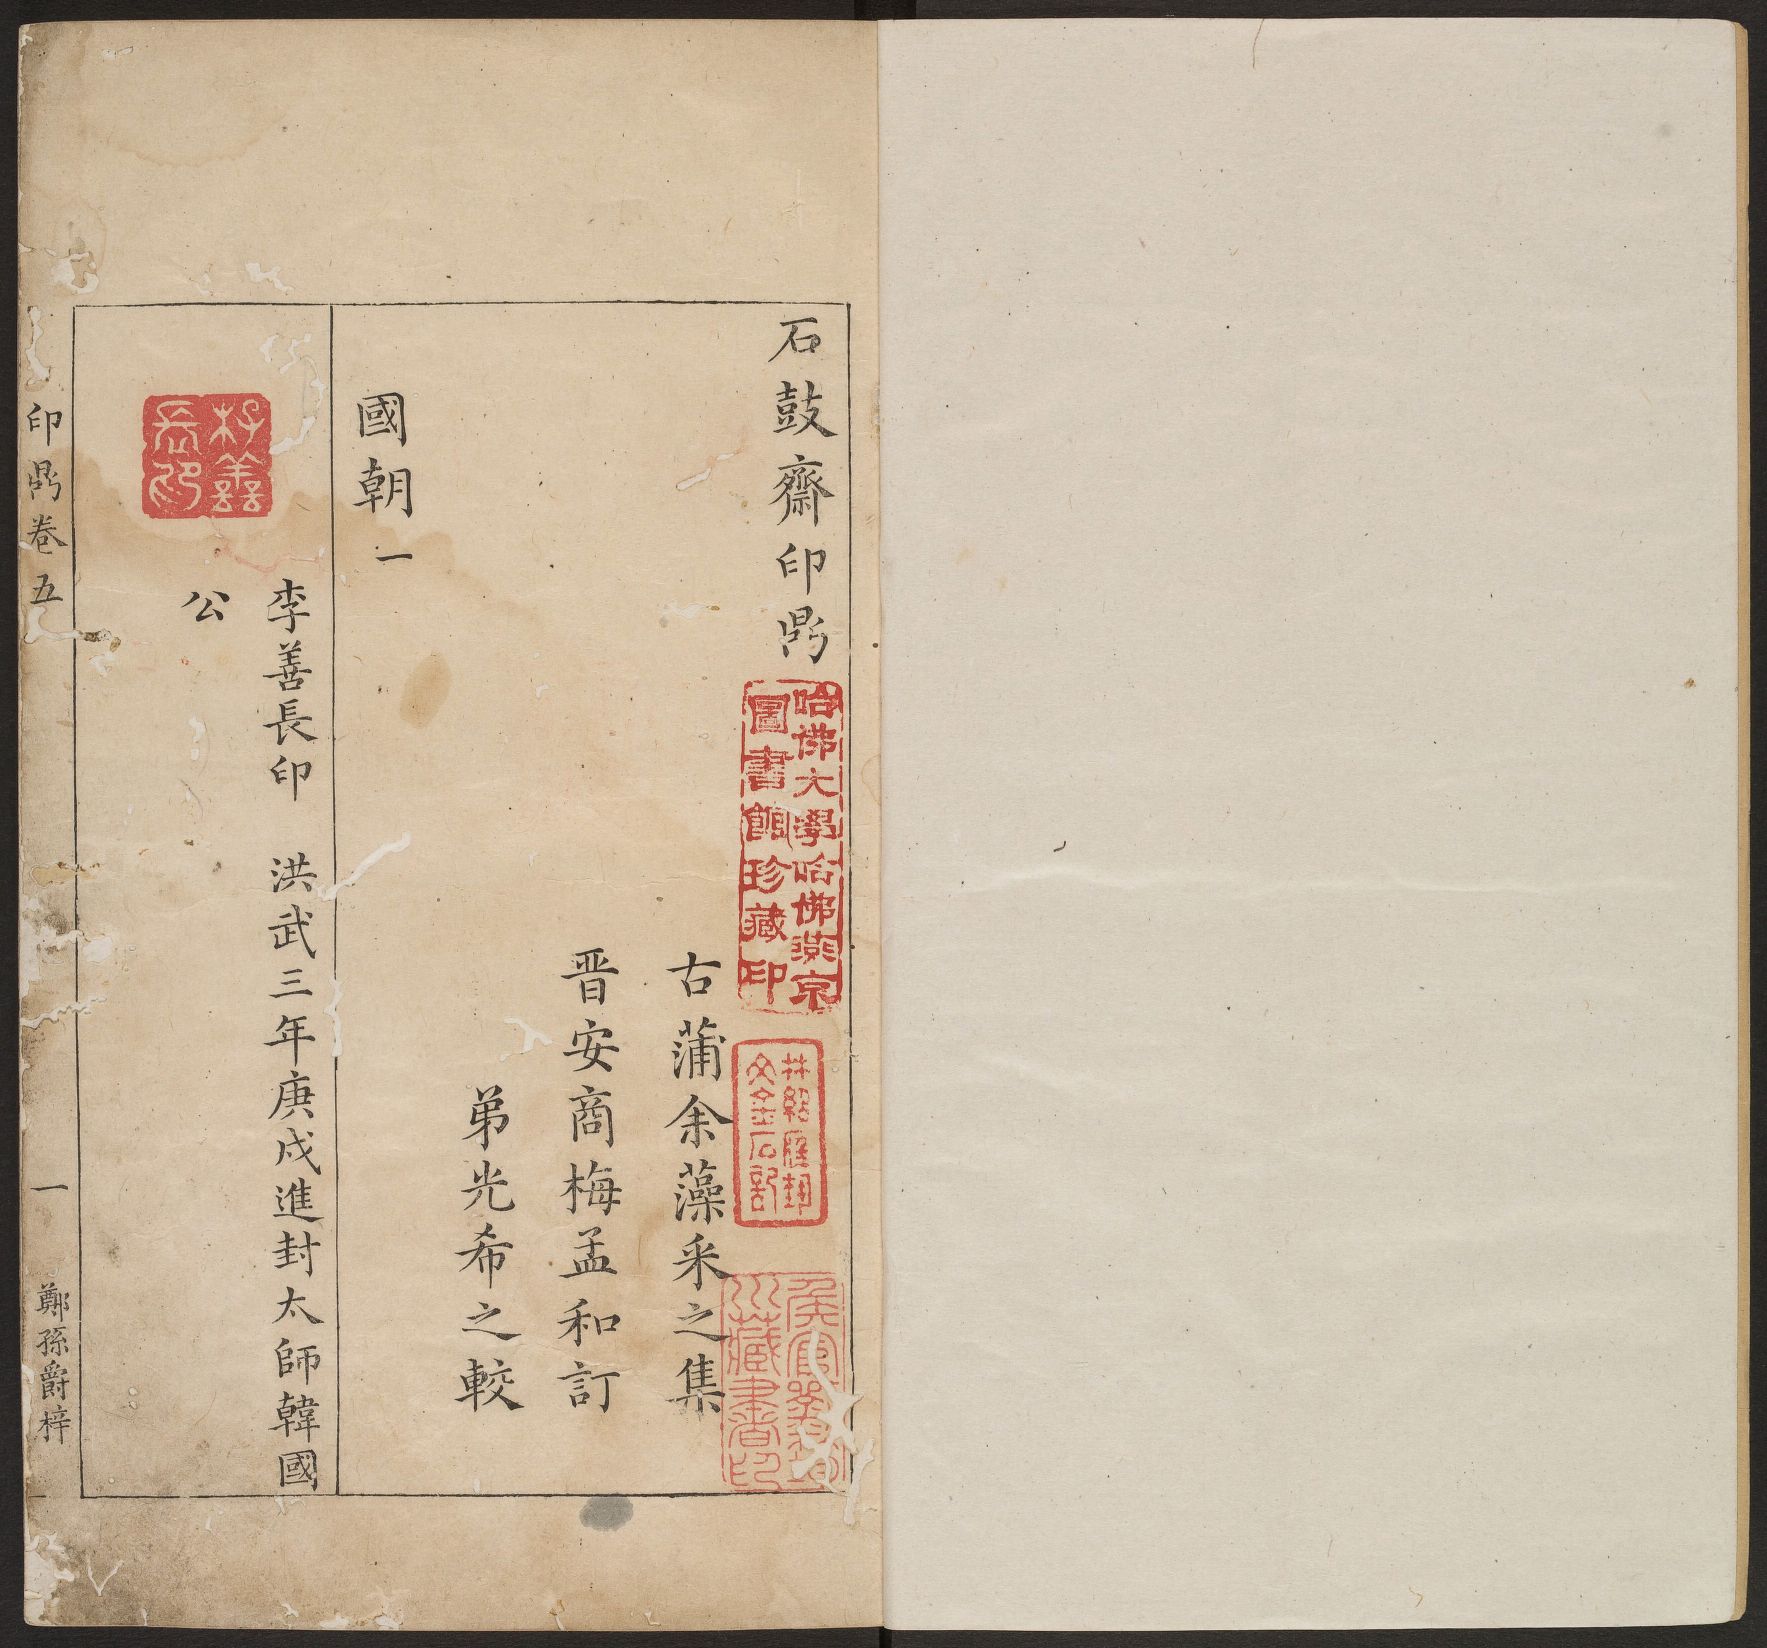 石鼓齋印鼎
古蒲余藻采之集
晋安商梅孟和訂
弟光希之較
國朝一
李善長印 洪武三年庚戌進封太師韓國
公
李善長印
印鼎卷五
一
鄭孫爵梓
哈佛大學哈佛燕京
圖書館珍藏印
藏書印